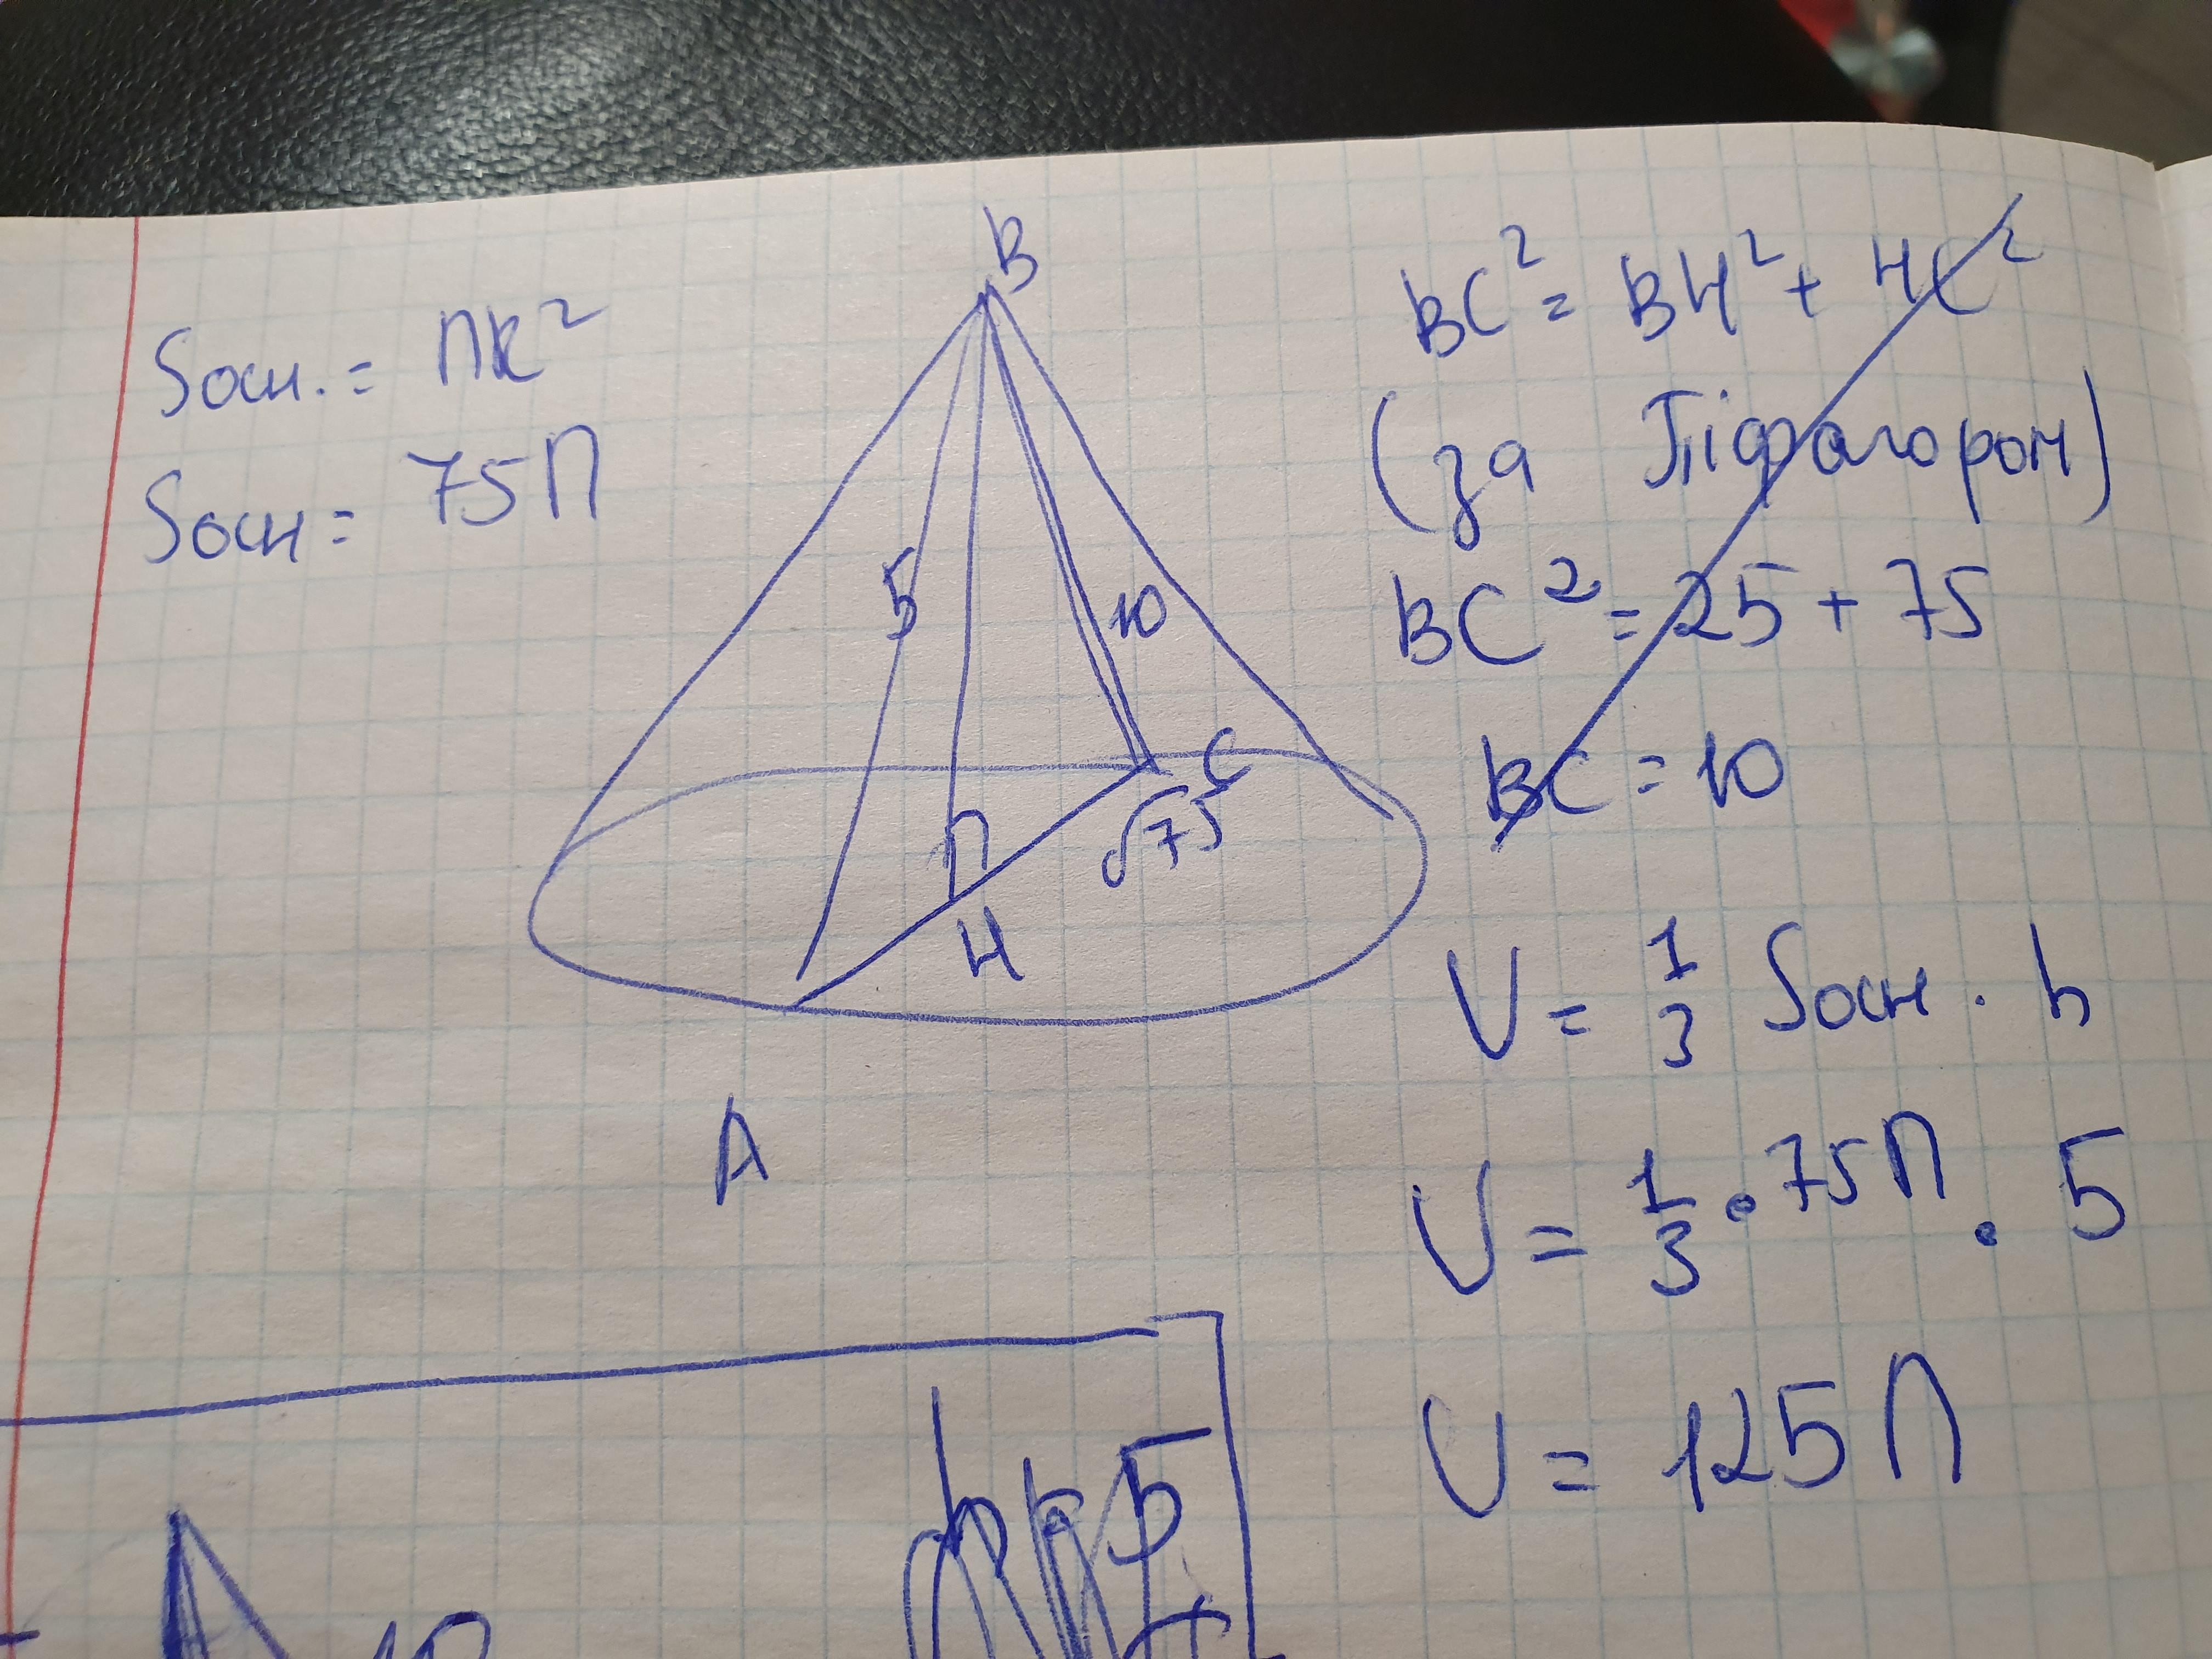 Sосн. = ПR²
Sосн = 75П
B
5
10
C
√75
H
A
BC² = BH² + HC²
(за Піфагором)
BC² = 25 + 75
BC = 10
V = 1/3 Sосн · h
V = 1/3 · 75П · 5
V = 125П
5
10